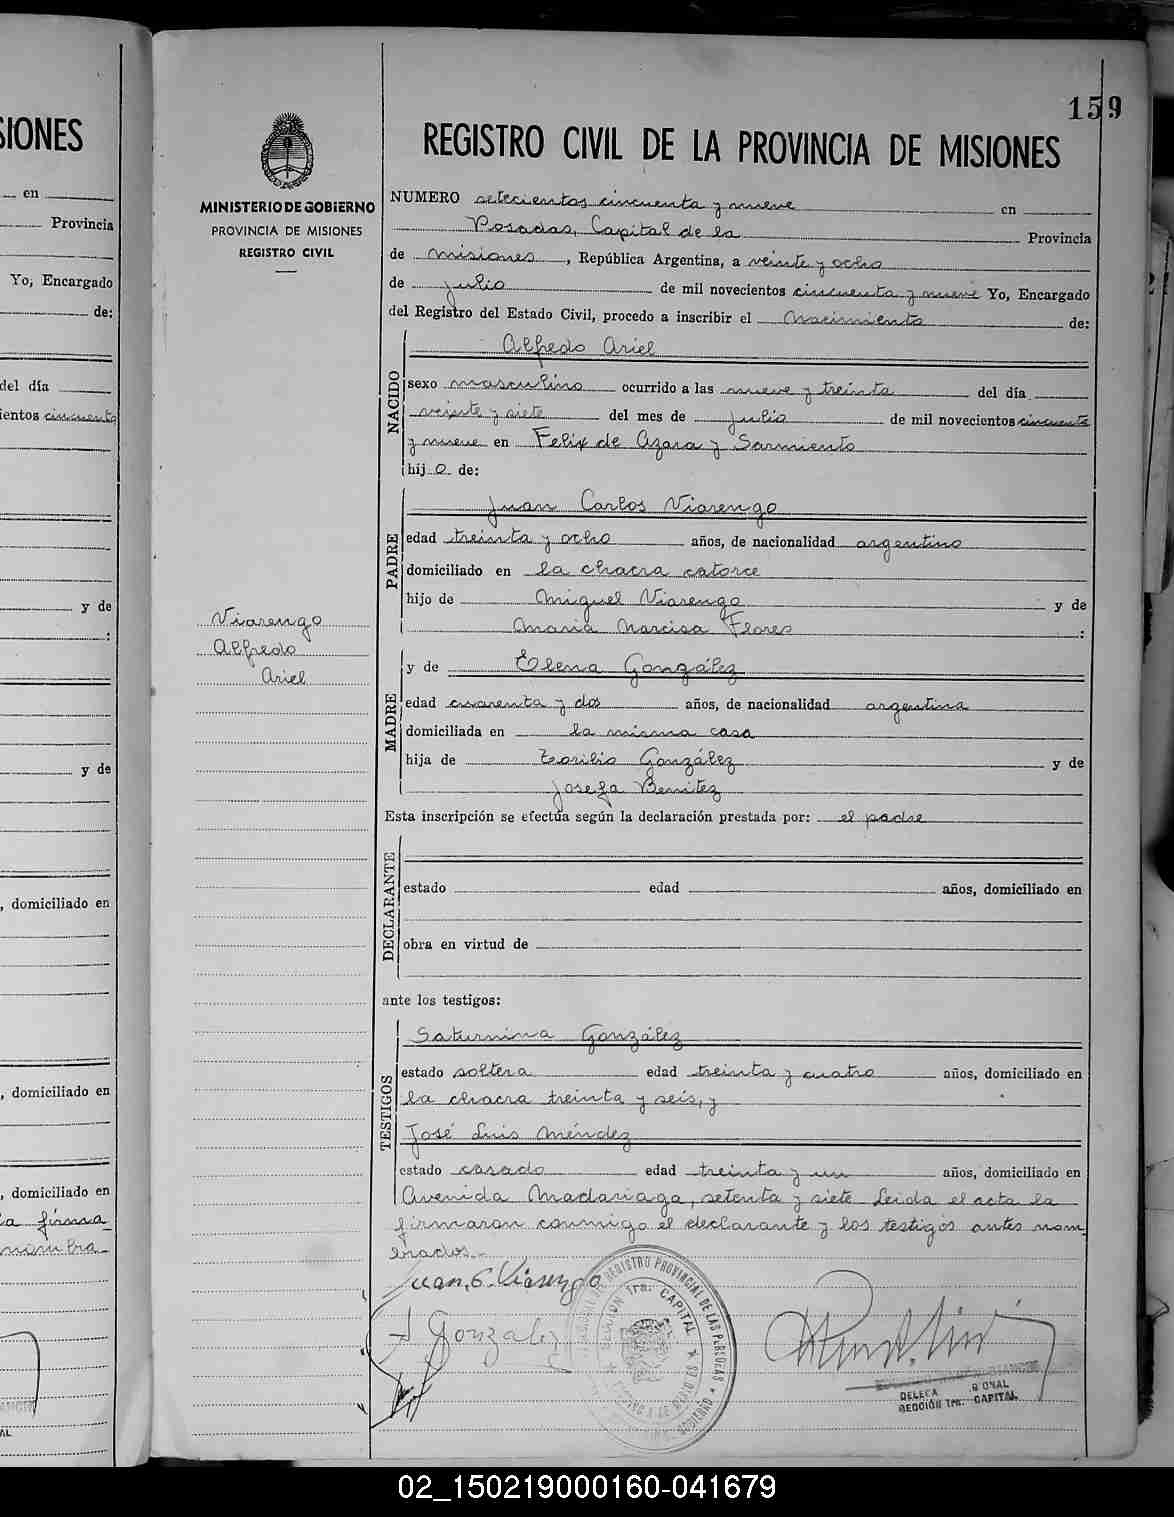 159
SIONES
en
Provincia
Yo, Encargado
de:
del día
ientos cincuenta
y de
:
y de
, domiciliado en
, domiciliado en
, domiciliado en
la firma
nombra
MINISTERIO DE GOBIERNO
PROVINCIA DE MISIONES
REGISTRO CIVIL
Viarengo
Alfredo
Ariel
REGISTRO CIVIL DE LA PROVINCIA DE MISIONES
NUMERO setecientos cincuenta y nueve en
Posadas, Capital de la Provincia
de misiones, República Argentina, a veinte y ocho
de julio de mil novecientos cincuenta y nueve Yo, Encargado
del Registro del Estado Civil, procedo a inscribir el nacimiento de:
NACIDO
Alfredo Ariel
sexo masculino ocurrido a las nueve y treinta del día
veinte y siete del mes de julio de mil novecientos cincuenta
y nueve en Felix de Azara y Sarmiento
hijo de:
PADRE
Juan Carlos Viarengo
edad treinta y ocho años, de nacionalidad argentino
domiciliado en la chacra catorce
hijo de Miguel Viarengo y de
Maria Narcisa Flores :
MADRE
y de Elena González
edad cuarenta y dos años, de nacionalidad argentina
domiciliada en la misma casa
hija de Zoribio González y de
Josefa Benitez
Esta inscripción se efectúa según la declaración prestada por: el padre
DECLARANTE
estado edad años, domiciliado en
obra en virtud de
ante los testigos:
TESTIGOS
Saturnina González
estado soltera edad treinta y cuatro años, domiciliado en
la chacra treinta y seis, y
José Luis Méndez
estado casado edad treinta y un años, domiciliado en
Avenida Madariaga, setenta y siete Leida el acta la
firmaron conmigo el declarante y los testigos antes nom
brados.-
Juan, C. Viarengo
S Gonzalez
REGISTRO PROVINCIAL DE LAS PERSONAS
SECCION 1ra. CAPITAL
SECCIÓN 1ra. CAPITAL
02_150219000160-041679